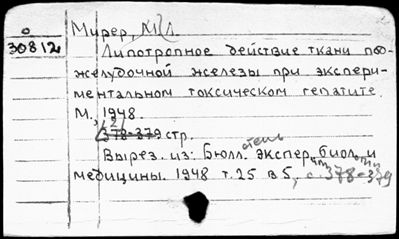 о
30812
Мирер, М. Л.
Липотропное действие ткани под-
желудочной железы при экспери-
ментальном токсическом гепатите.
М., 1948.
(2)
378-379 стр.
Вырез. из: Бюллетень экспер. биологии
медицины. 1948 т. 25 в 5, с. 378-379